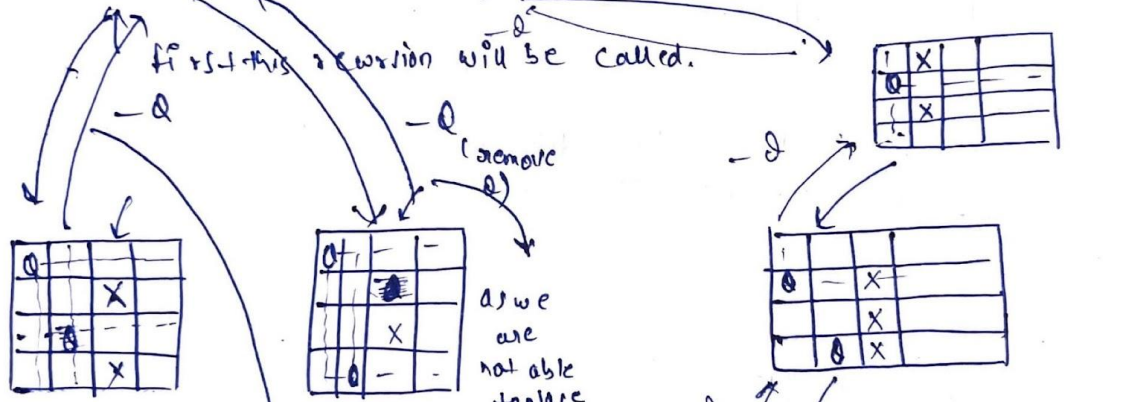 - Q
first this recursion will be called.
- Q
- Q
(remove
Q)
- Q
X
Q
X
Q
X
Q
X
Q
X
Q
as we
are
not able
Q X
X
Q X